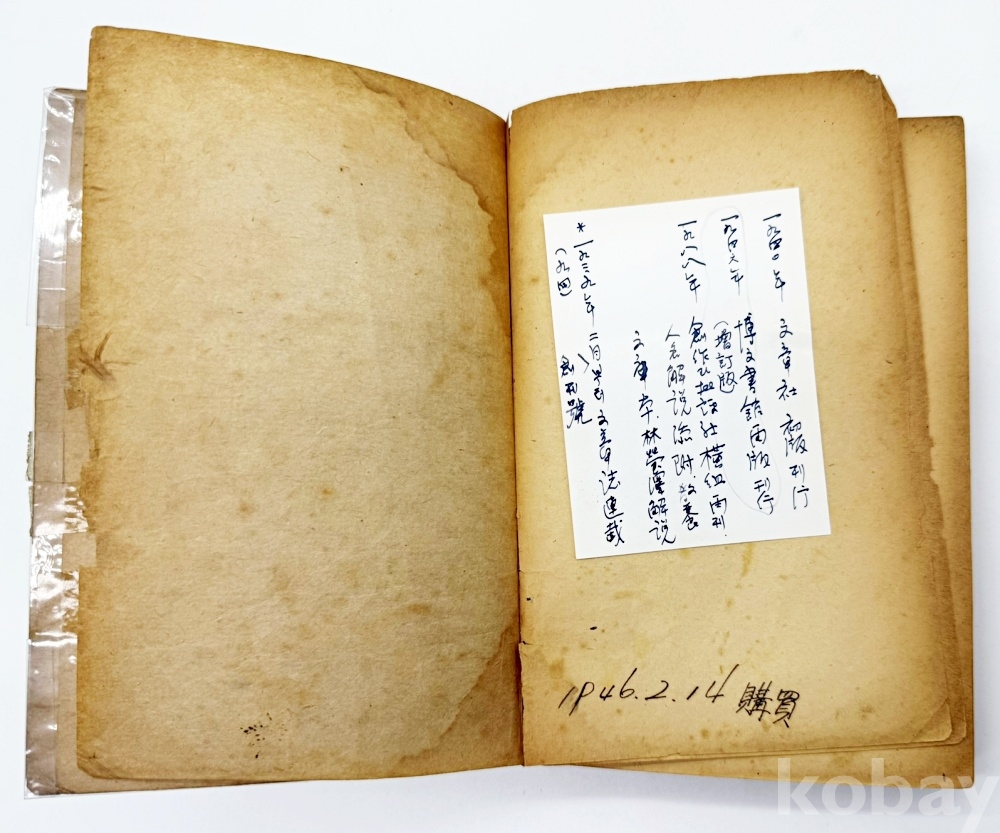 一九四〇年 文章社 初版刊行
一九四六年 博文書館 再版刊行
(增訂版)
一九八八年 創作과批評社 橫組 再刊.
人名解説添附. 敎養
文庫本. 林熒澤解説
*一九三九年 二月 부터 文章誌連載
(九四) 創刊號
1946.2.14 購買
kobay